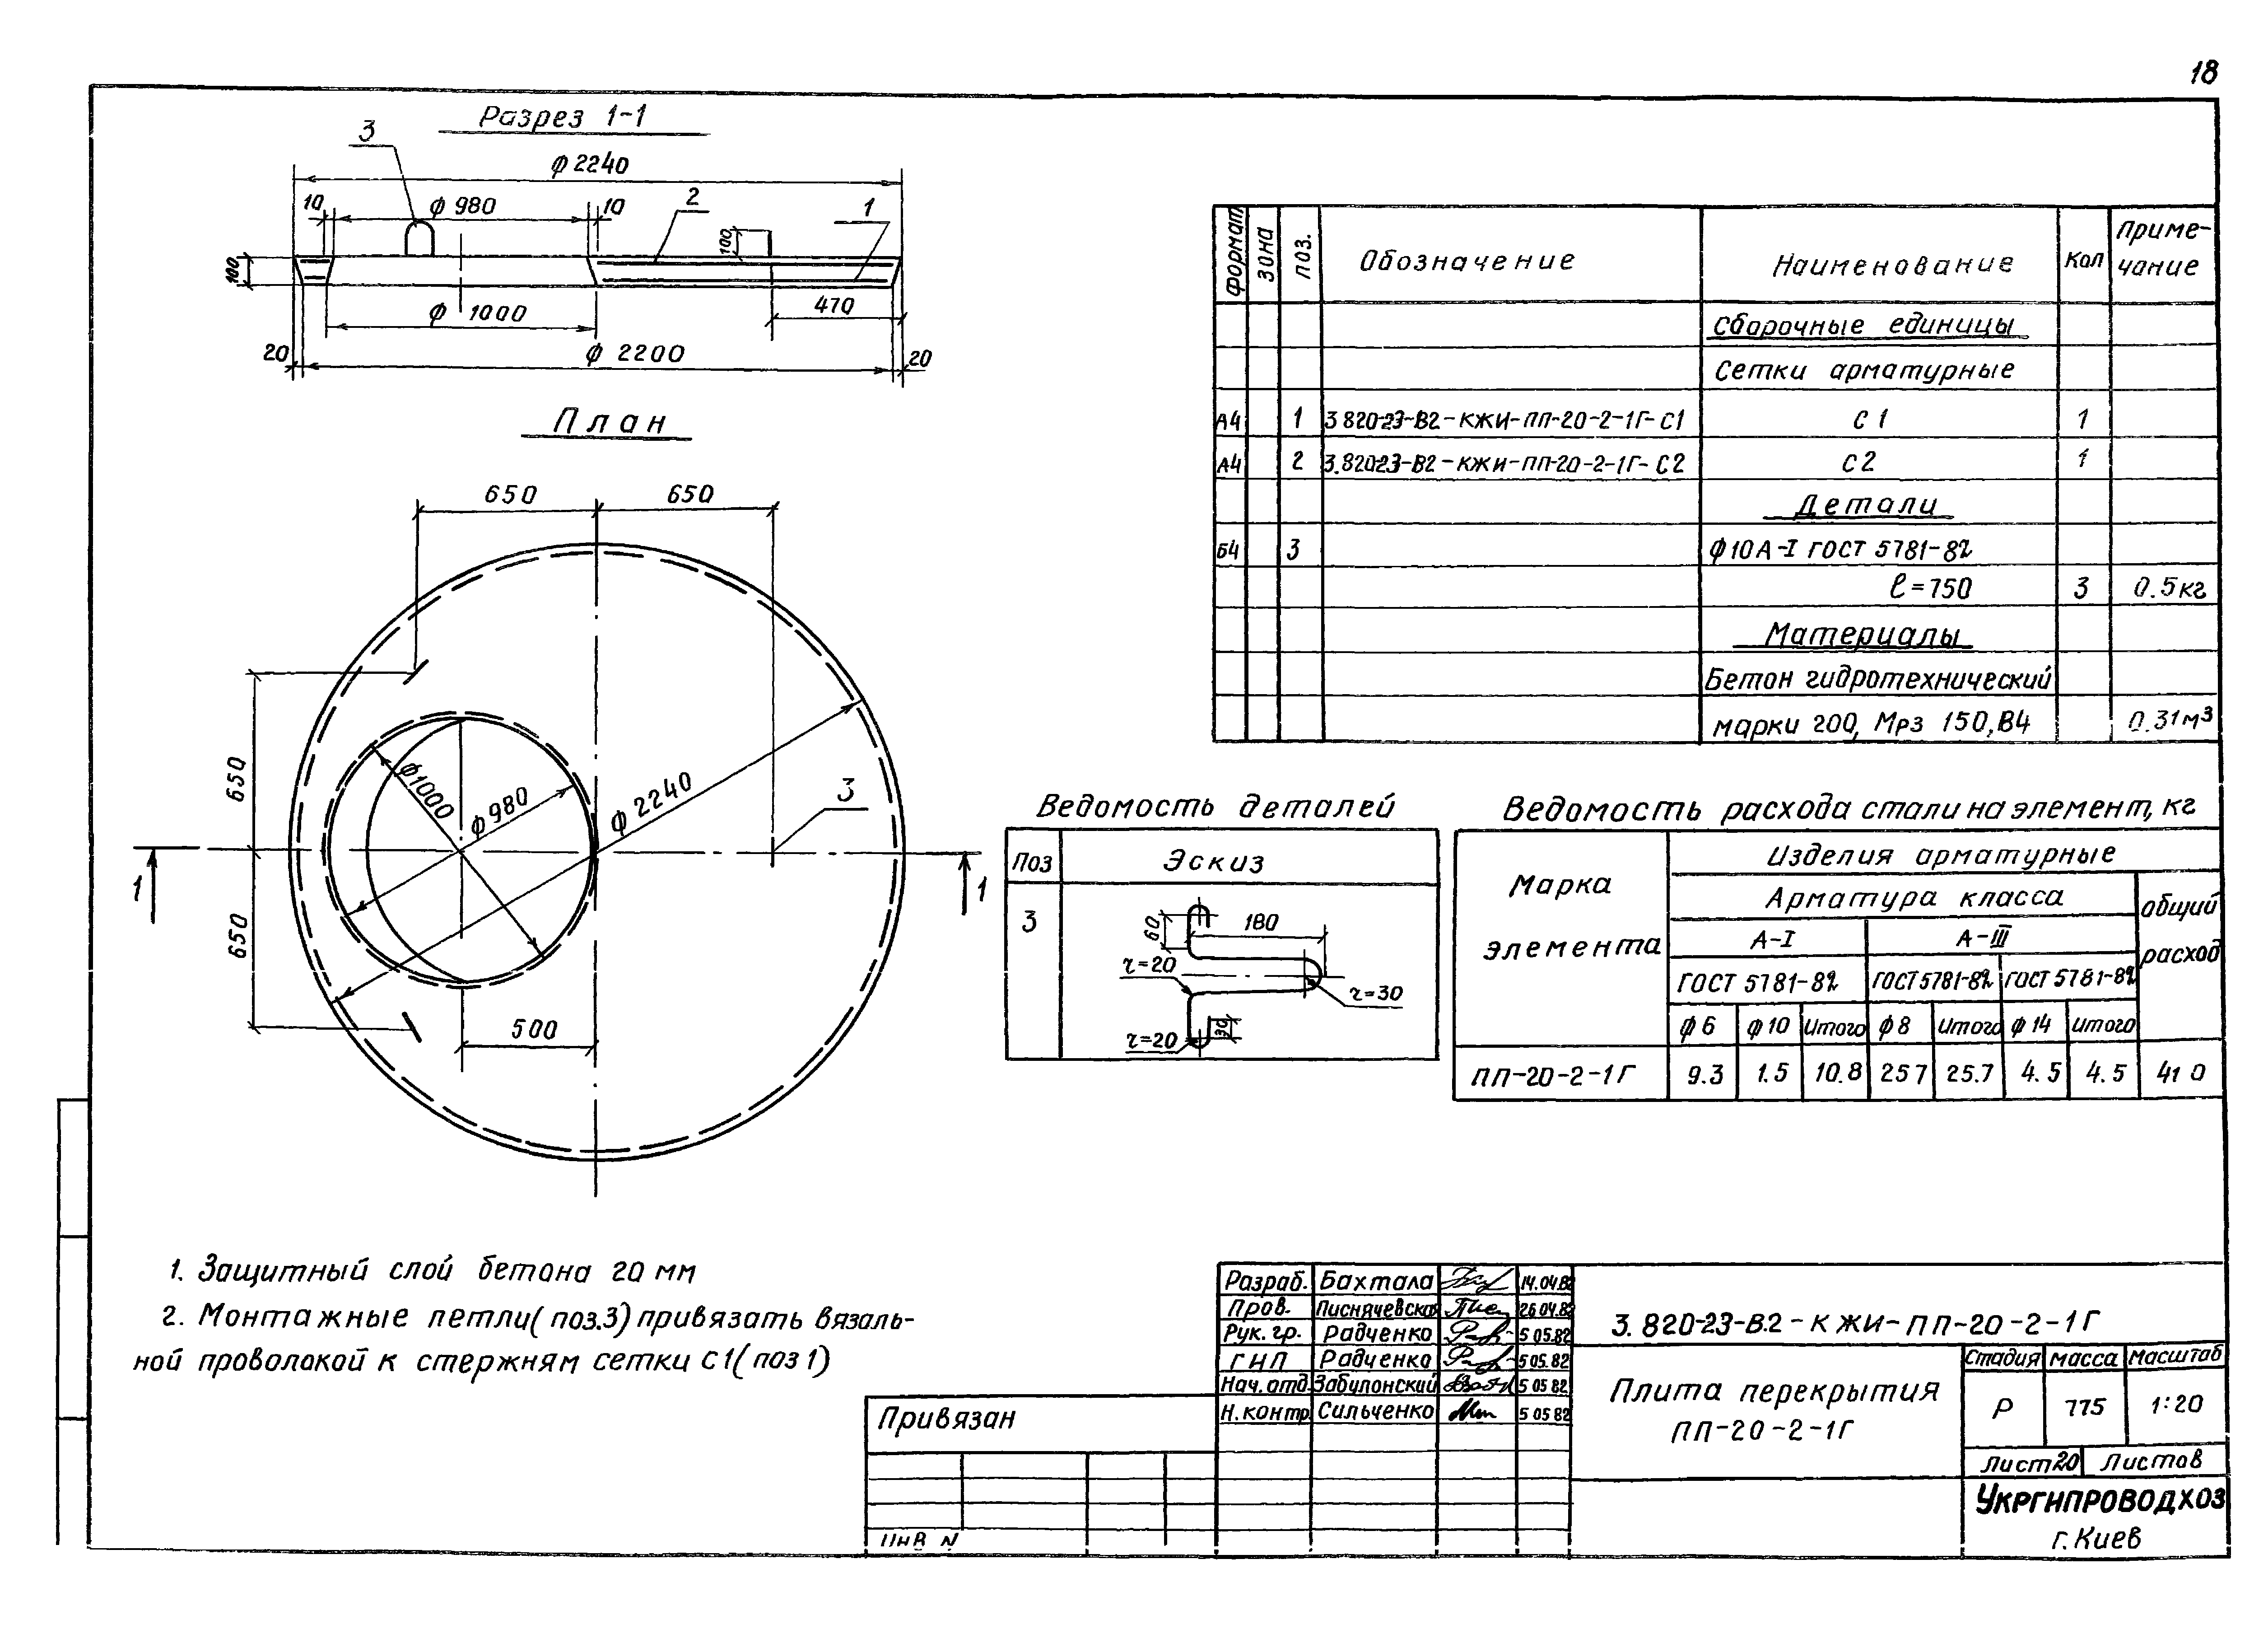 18
Разрез 1-1
3
ф 2240
10 ф 980 10 2 1
100 100
ф 1000 470
20 ф 2200 20
План
650 650
650
ф1000 ф980 ф 2240 3
1 1
650
500
Формат Зона Поз. Обозначение Наименование Кол Приме-
чание
Сборочные единицы
Сетки арматурные
А4 1 3 820-23-В2-КЖИ-ПП-20-2-1Г-С1 С 1 1
А4 2 3.820-23-В2-КЖИ-ПП-20-2-1Г-С2 С 2 1
Детали
Б4 3 ф10А-I ГОСТ 5781-82
ℓ=750 3 0.5кг
Материалы
Бетон гидротехнический
марки 200, Мрз 150, В4 0.31м³
Ведомость деталей
Поз Эскиз
3
60 180
r=20
r=30
30
r=20
Ведомость расхода стали на элемент, кг
Марка элемента Изделия арматурные
Арматура класса общий расход
А-I А-III
ГОСТ 5781-82 ГОСТ 5781-82 ГОСТ 5781-82
ф 6 ф 10 Итого ф 8 Итого ф 14 Итого
ПП-20-2-1Г 9.3 1.5 10.8 25 7 25.7 4.5 4.5 41 0
1. Защитный слой бетона 20 мм
2. Монтажные петли (поз.3) привязать вязаль-
ной проволокой к стержням сетки С1 (поз 1)
Привязан
Инв N
Разраб. Бахтала 14.04.82
Пров. Писнячевская 26.04.82
Рук. гр. Радченко 5 05.82
ГИП Радченко 5 05.82
Нач. отд. Забулонский 5 05 82
Н. контр. Сильченко 5 05 82
3. 820-23-В.2-КЖИ-ПП-20-2-1Г
Плита перекрытия
ПП-20-2-1Г
Стадия Масса Масштаб
Р 775 1:20
Лист 20 Листов
Укргипроводхоз
г. Киев